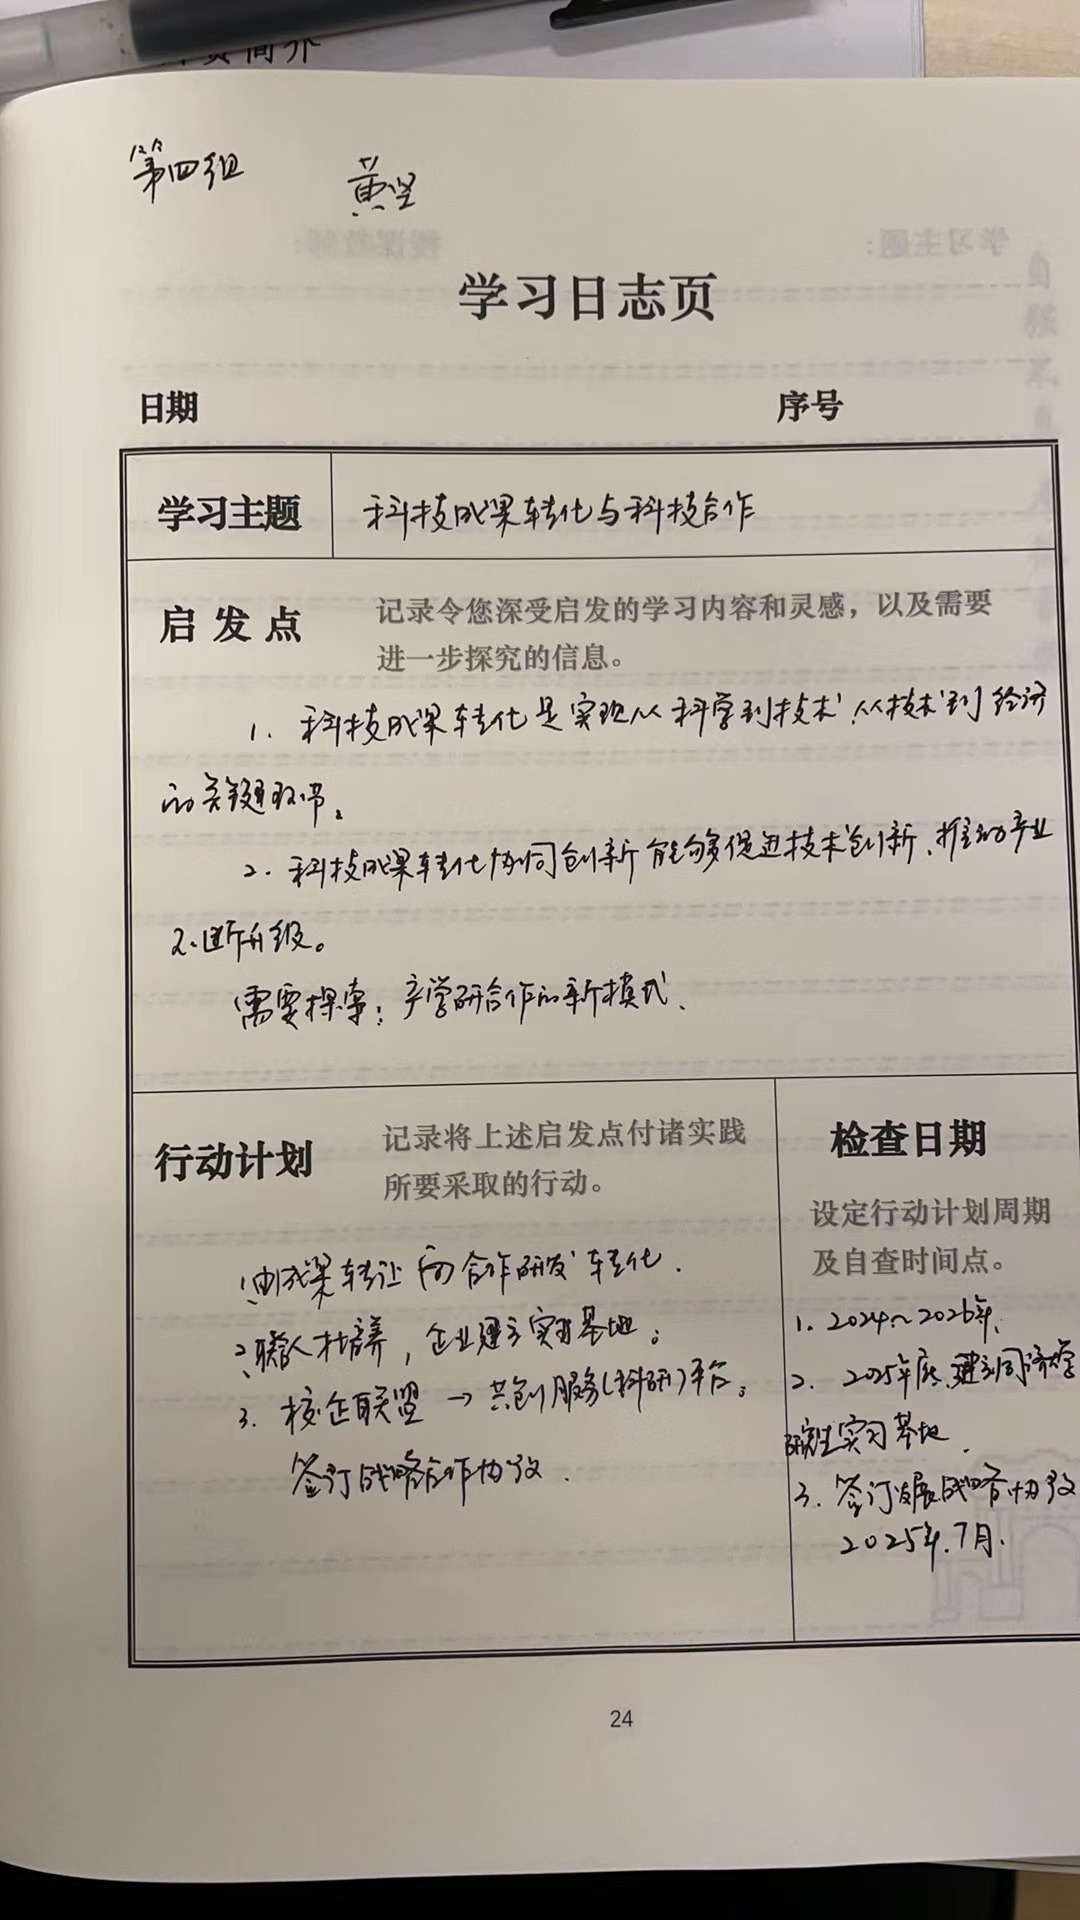 页简介
第四组 黄坚
学习日志页
日期 序号
学习主题 科技成果转化与科技合作
启发点 记录令您深受启发的学习内容和灵感，以及需要
进一步探究的信息。
1. 科技成果转化是实现从科学到技术、从技术到经济
的关键环节。
2. 科技成果转化协同创新能够促进技术创新、推动产业
不断升级。
需要探索：产学研合作的新模式.
行动计划 记录将上述启发点付诸实践
所要采取的行动。
1.由成果转让向合作研发转化.
2.联合人才培养，企业建立实习基地；
3. 校企联盟→共创服务(科研)平台。
签订战略合作协议.
检查日期
设定行动计划周期
及自查时间点。
1. 2024~2026年.
2. 2025年底.建立同济大学
研究生实习基地.
3. 签订发展战略协议
2025年.7月.
24